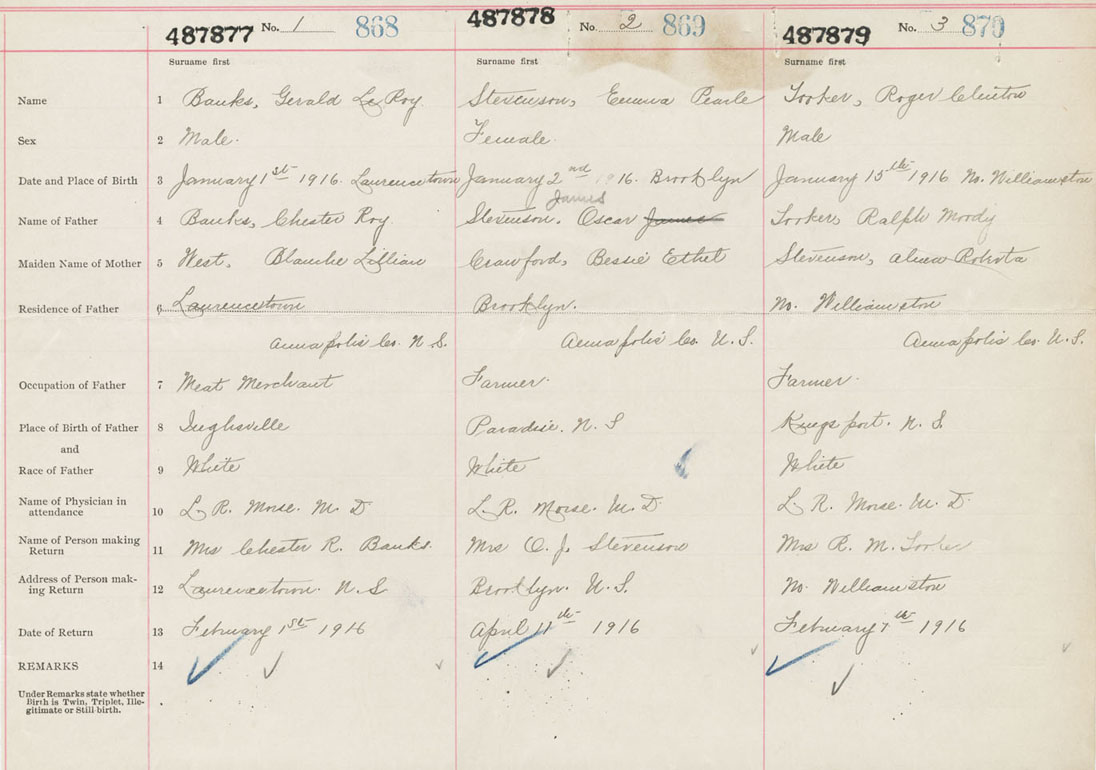 487877 No. 1 868 487878 No. 2 869 487879 No. 3 870
Surname first Surname first Surname first
Name 1 Banks, Gerald Le Roy. Stevenson, Emma Pearle Tooker, Roger Clinton
Sex 2 Male. Female. Male
Date and Place of Birth 3 January 1st 1916. Laurencetown January 2nd 1916. Brooklyn January 15th 1916 No. Williamston
James
Name of Father 4 Banks, Chester Roy. Stevenson. Oscar James Tooker, Ralph Moody
Maiden Name of Mother 5 West, Blanche Lillian Crawford, Bessie Ethel Stevenson, Alma
Residence of Father 6 Laurencetown Brooklyn. No. Williamston
Annapolis Co. N.S. Annapolis Co. N.S. Annapolis Co. N.S.
Occupation of Father 7 Meat Merchant Farmer. Farmer.
Place of Birth of Father 8 Inglisville Paradise. N.S Kingsport. N.S.
and
Race of Father 9 White White White
Name of Physician in
attendance 10 L. R. Morse. M. D L. R. Morse. M. D. L. R. Morse. M. D
Name of Person making
Return 11 Mrs Chester R. Banks. Mrs O. J. Stevenson Mrs R. M. Tooker
Address of Person mak-
ing Return 12 Laurencetown. N.S Brooklyn. N.S. No. Williamston
Date of Return 13 February 1st 1916 April 11th 1916 February 7th 1916
REMARKS 14
Under Remarks state whether
Birth is Twin, Triplet, Ille-
gitimate or Still-birth.